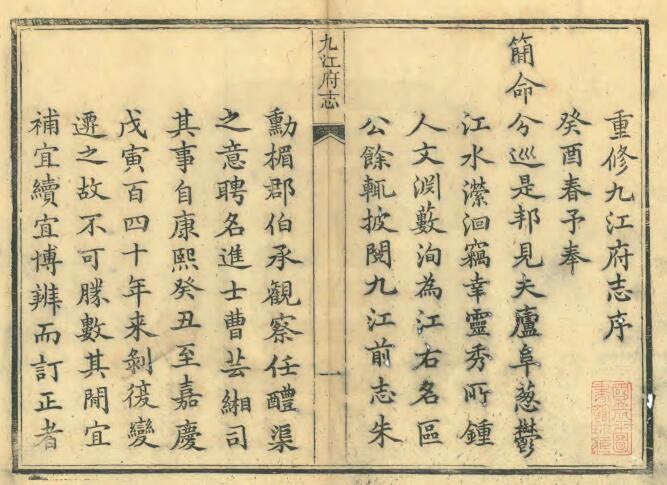 重修九江府志序
癸酉春予奉
簡命分巡是邦見夫廬阜葱鬱
江水瀠洄竊幸靈秀所鍾
人文淵藪洵為江右名區
公餘輒披閱九江前志朱
九江府志
一
勳楣郡伯承觀察任醴渠
之意聘名進士曹芸緗司
其事自康熙癸丑至嘉慶
戊寅百四十年來剝復變
遷之故不可勝數其間宜
補宜續宜博辨而訂正者